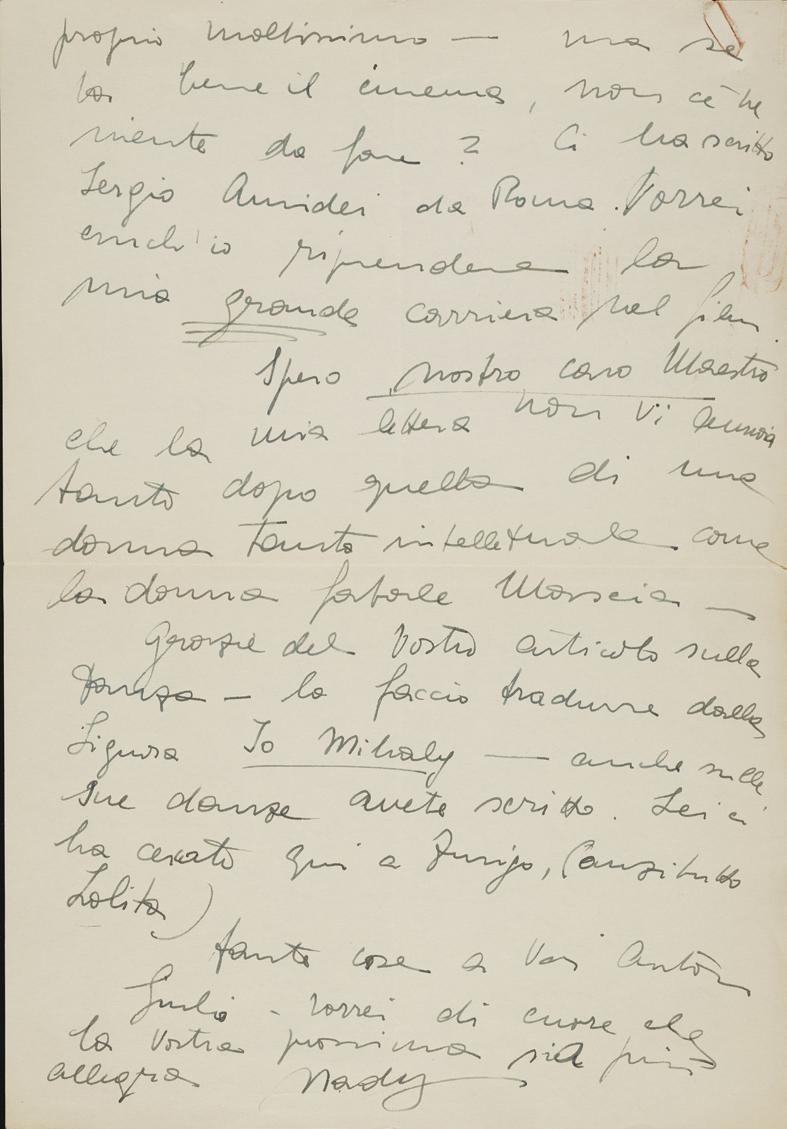 proprio moltissimo — ma se
va bene il cinema, non c'è
niente da fare? Ci ha scritto
Sergio Amidei da Roma. Vorrei
anch'io riprendere la
mia grande carriera nel film.
Spero nostro caro Maestro
che la mia lettera non Vi annoia
tanto dopo quella di una
donna tanto intelletuale come
la donna fatale Marscia —
Grazie del Vostro articolo sulla
Danza — lo faccio tradurre dalla
Signora Jo Mihaly — anche sulle
sue danze avete scritto. Lei ci
ha cercato qui a Zurigo, (anzitutto
Lolita)
tante cose a Voi Anton
Giulio - vorrei di cuore che
la Vostra prossima sia più
allegra Nady